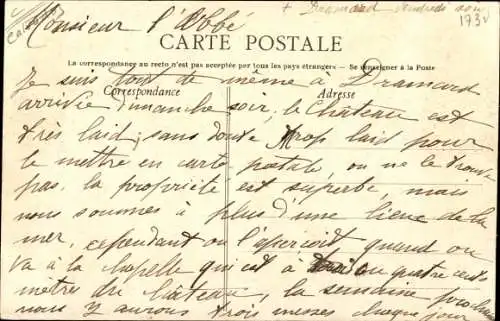 + Dramard vendredi soir
Monsieur l'Abbé
CARTE POSTALE
La correspondance au recto n'est pas acceptée par tous les pays étrangers — Se renseigner à la Poste
Correspondance
Adresse
Je suis tout de même à Dramard
arrivée dimanche soir, le château est
très laid, sans doute trop laid pour
le mettre en carte postale, on ne le trouve
pas, la propriété est superbe, mais
nous sommes à plus d'une lieue de la
mer, cependant on l'aperçoit quand on
va à la chapelle qui est à ou quatre cents
mètres du château, la semaine prochaine
nous y aurons trois messes chaque jour